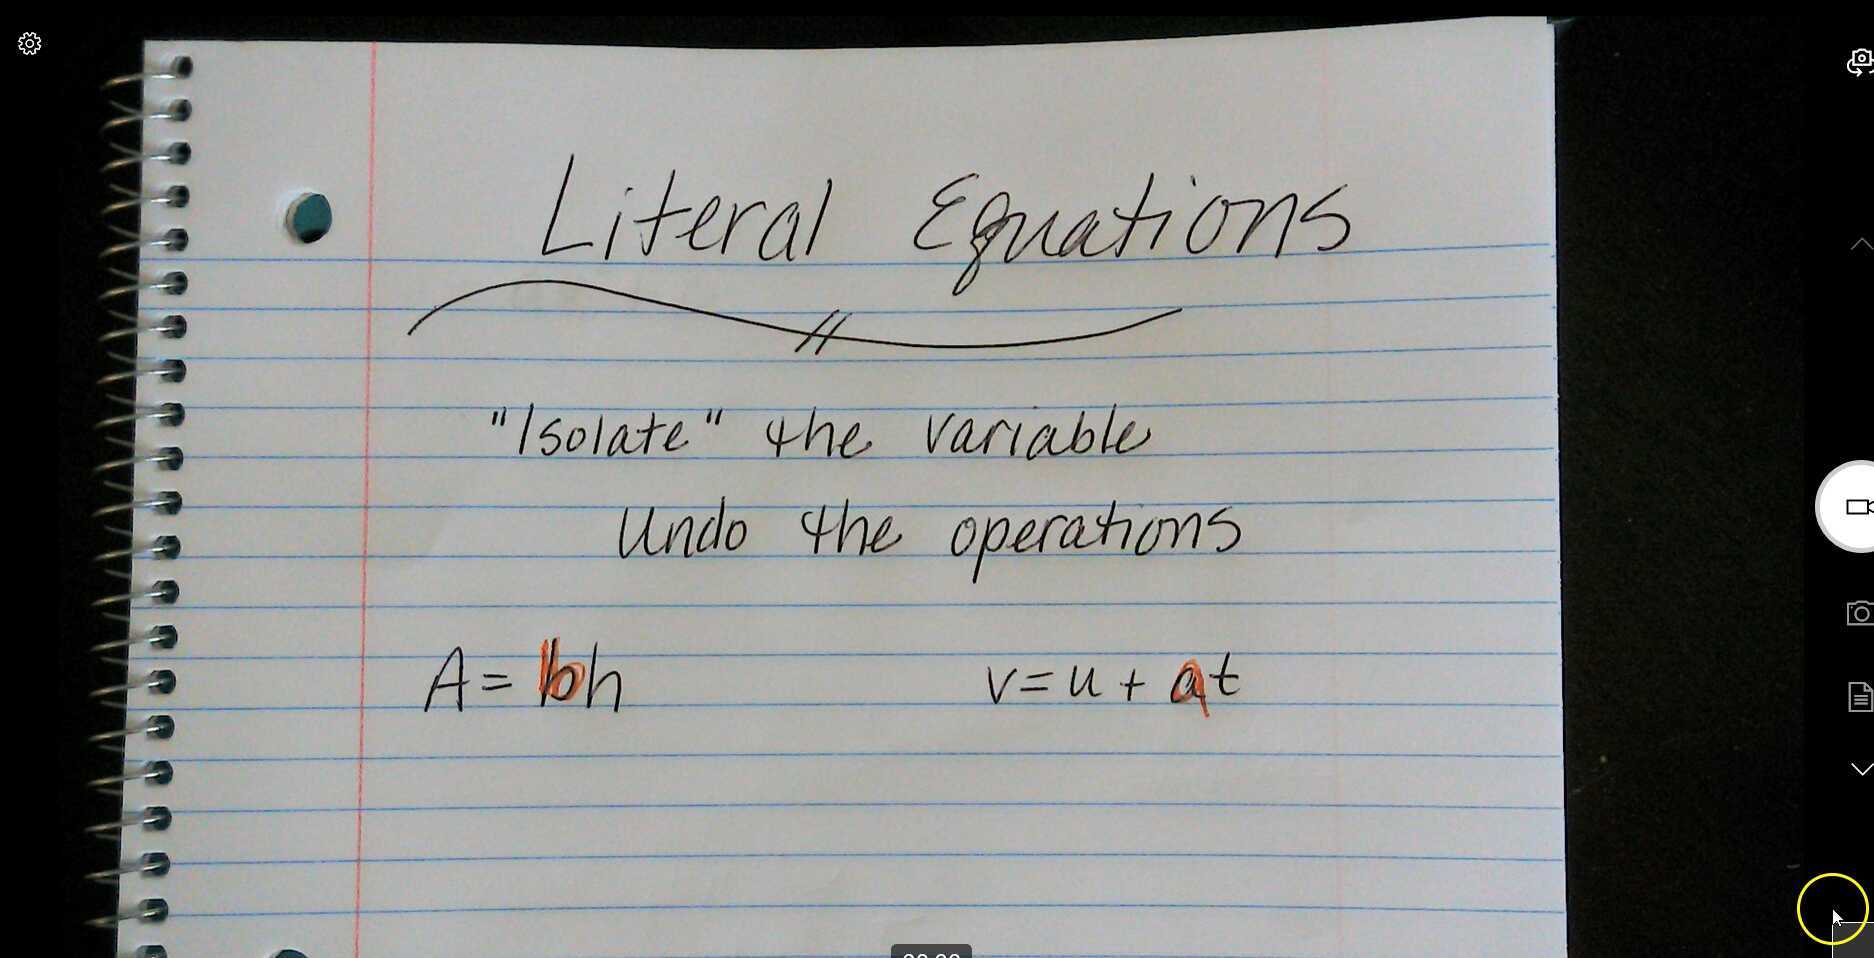 Literal Equations
"Isolate" the variable
Undo the operations
A = bh
v = u + at